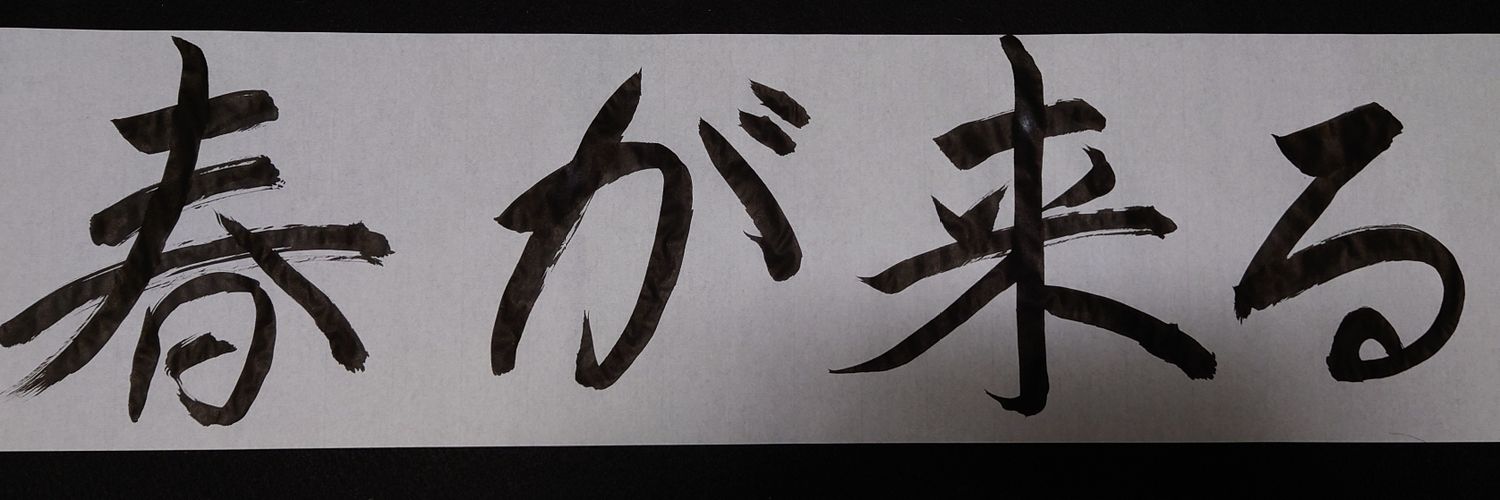 春が来る